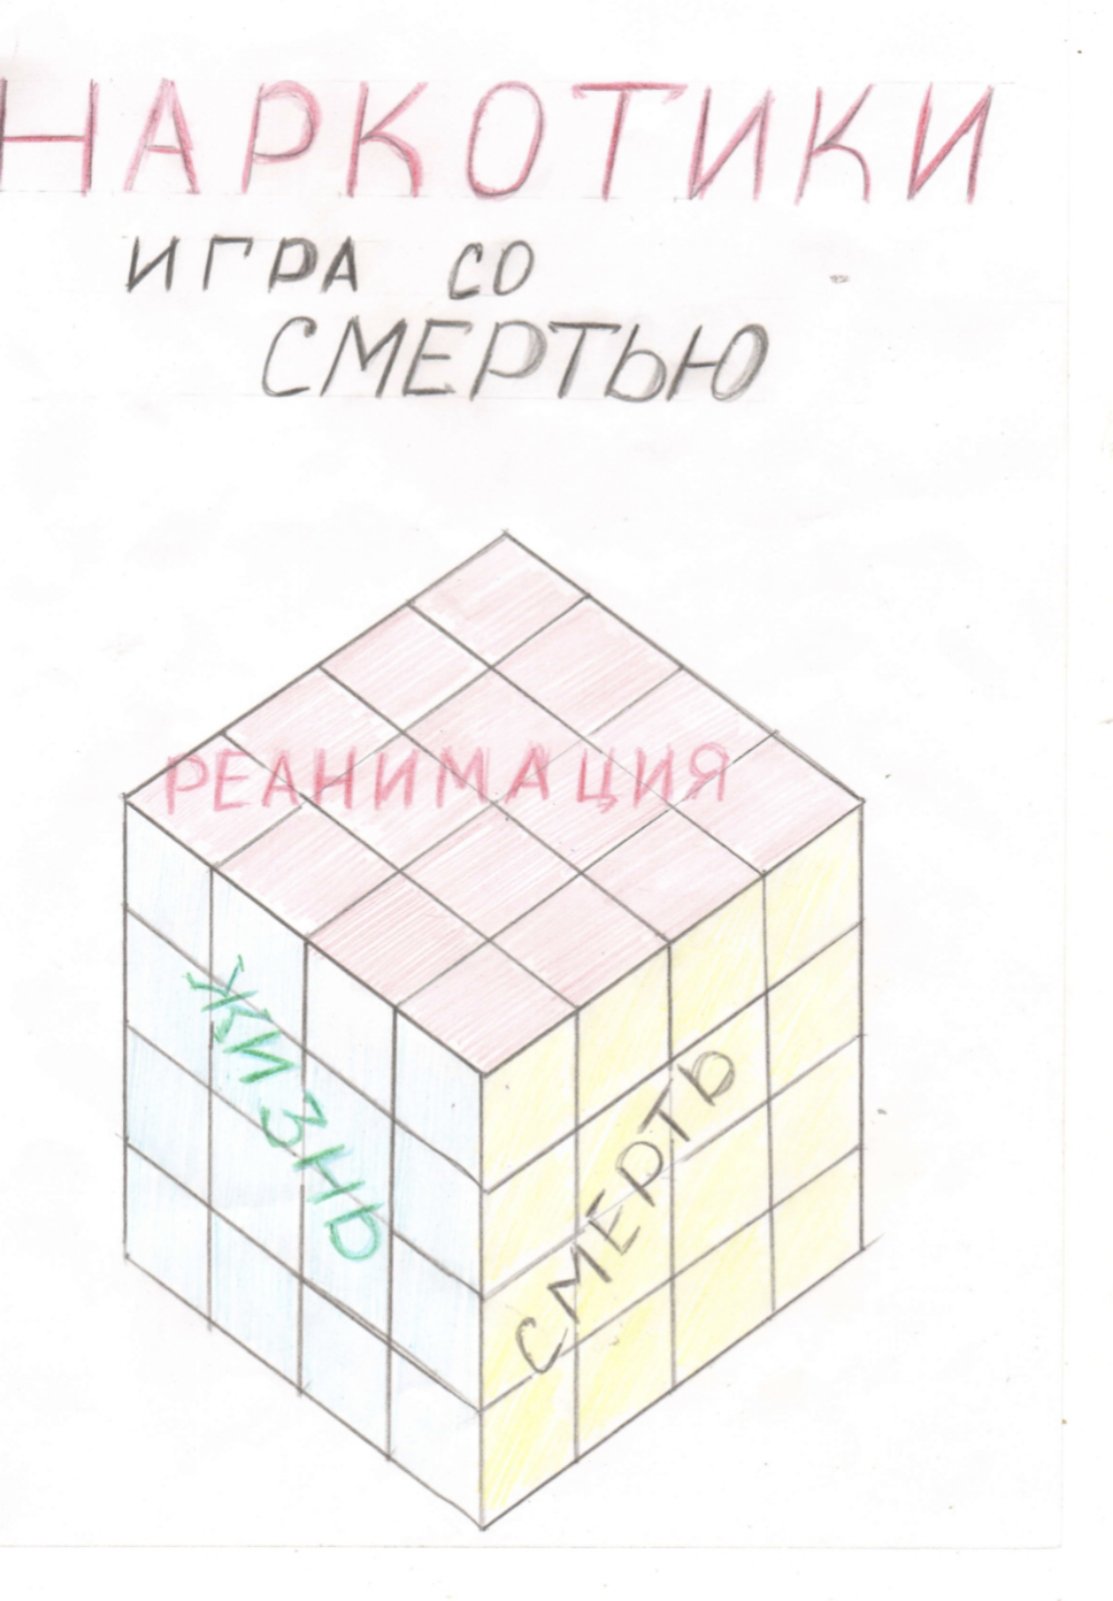 НАРКОТИКИ
ИГРА СО
СМЕРТЬЮ
РЕАНИМАЦИЯ
ЖИЗНЬ
СМЕРТЬ